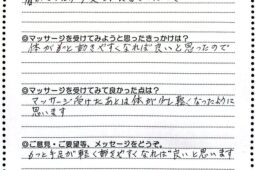 ◎マッサージを受けてみようと思ったきっかけは？
体がもっと動きやすくなれば良いと思ったので
◎マッサージを受けてみて良かった点は？
マッサージ受けたあとは体が少し軽くなったように
思います
◎ご意見・ご要望等、メッセージをどうぞ。
もっと手足が軽く動きやすくなれば良いと思います